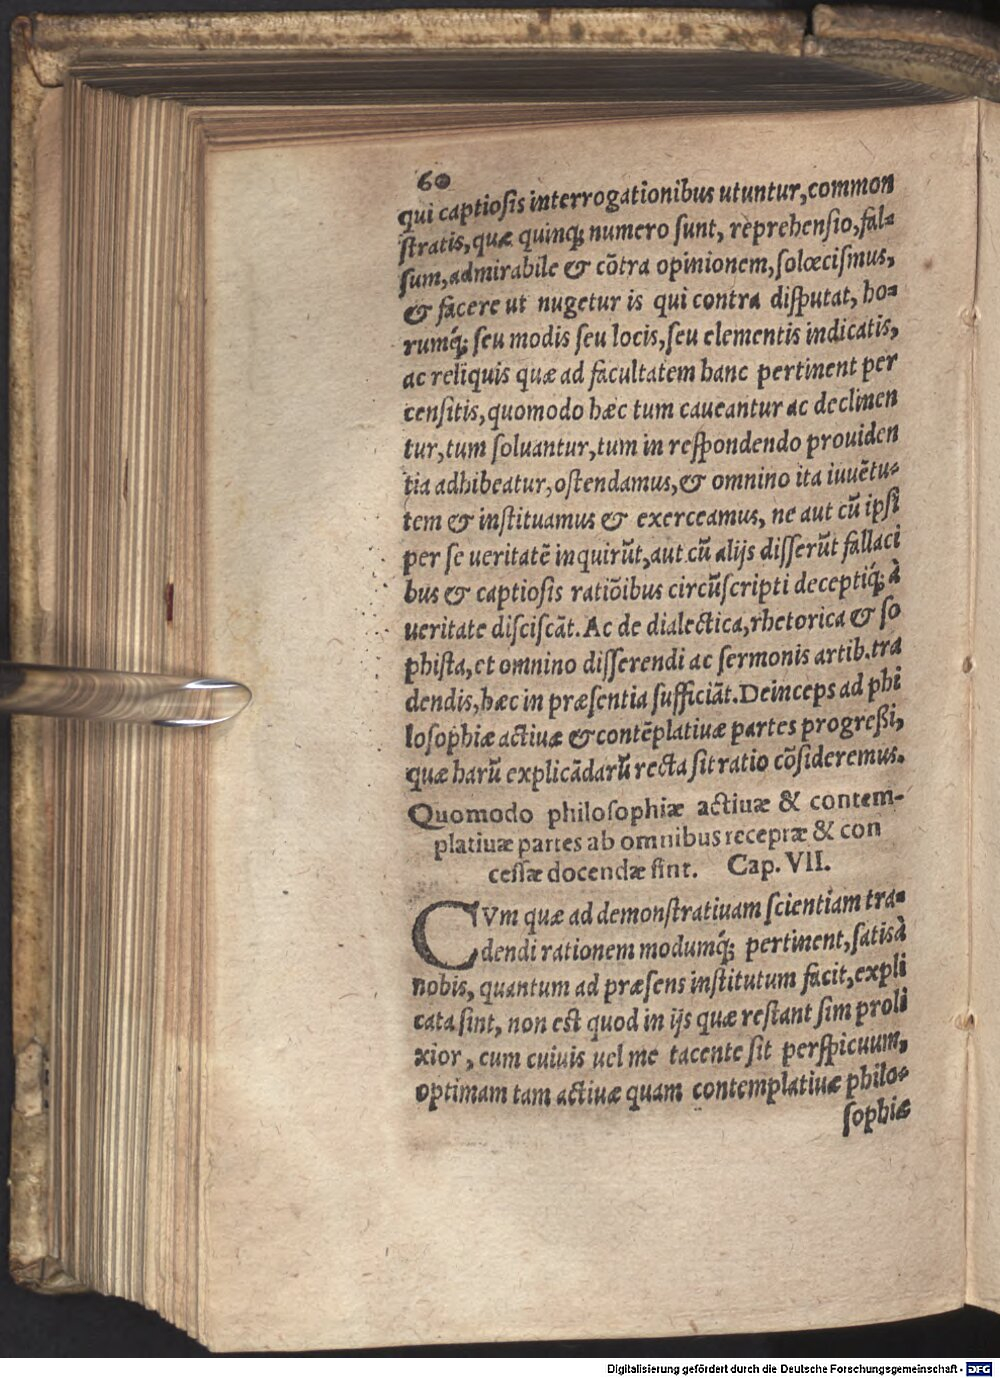 60
qui captiosis interrogationibus utuntur, common
stratis, quæ quinq; numero sunt, reprehensio, fal-
sum, admirabile & cõtra opinionem, solœcismus,
& facere ut nugetur is qui contra disputat, ho-
rumq́; seu modis seu locis, seu elementis indicatis,
ac reliquis quæ ad facultatem hanc pertinent per
censitis, quomodo hæc tum caueantur ac declinen
tur, tum soluantur, tum in respondendo prouiden
tia adhibeatur, ostendamus, & omnino ita iuuẽtu-
tem & instituamus & exerceamus, ne aut cũ ipsi
per se ueritatẽ inquirũt, aut cũ alijs disserũt fallaci
bus & captiosis ratiõibus circũscripti deceptiq́; à
ueritate disciscãt. Ac de dialectica, rhetorica & so
phista, et omnino disserendi ac sermonis artib. tra
dendis, hæc in præsentia sufficiãt. Deinceps ad phi
losophiæ actiuæ & contẽplatiuæ partes progreßi,
quæ harũ explicãdarũ recta sit ratio cõsideremus.
Quomodo philosophiæ actiuæ & contem-
platiuæ partes ab omnibus receptæ & con
cessæ docendæ sint. Cap. VII.
CVm quæ ad demonstratiuam scientiam tra-
dendi rationem modumq́; pertinent, satis à
nobis, quantum ad præsens institutum facit, expli
cata sint, non est quod in ijs quæ restant sim proli
xior, cum cuiuis uel me tacente sit perspicuum,
optimam tam actiuæ quam contemplatiuæ philo-
sophiæ
Digitalisierung gefördert durch die Deutsche Forschungsgemeinschaft - DFG